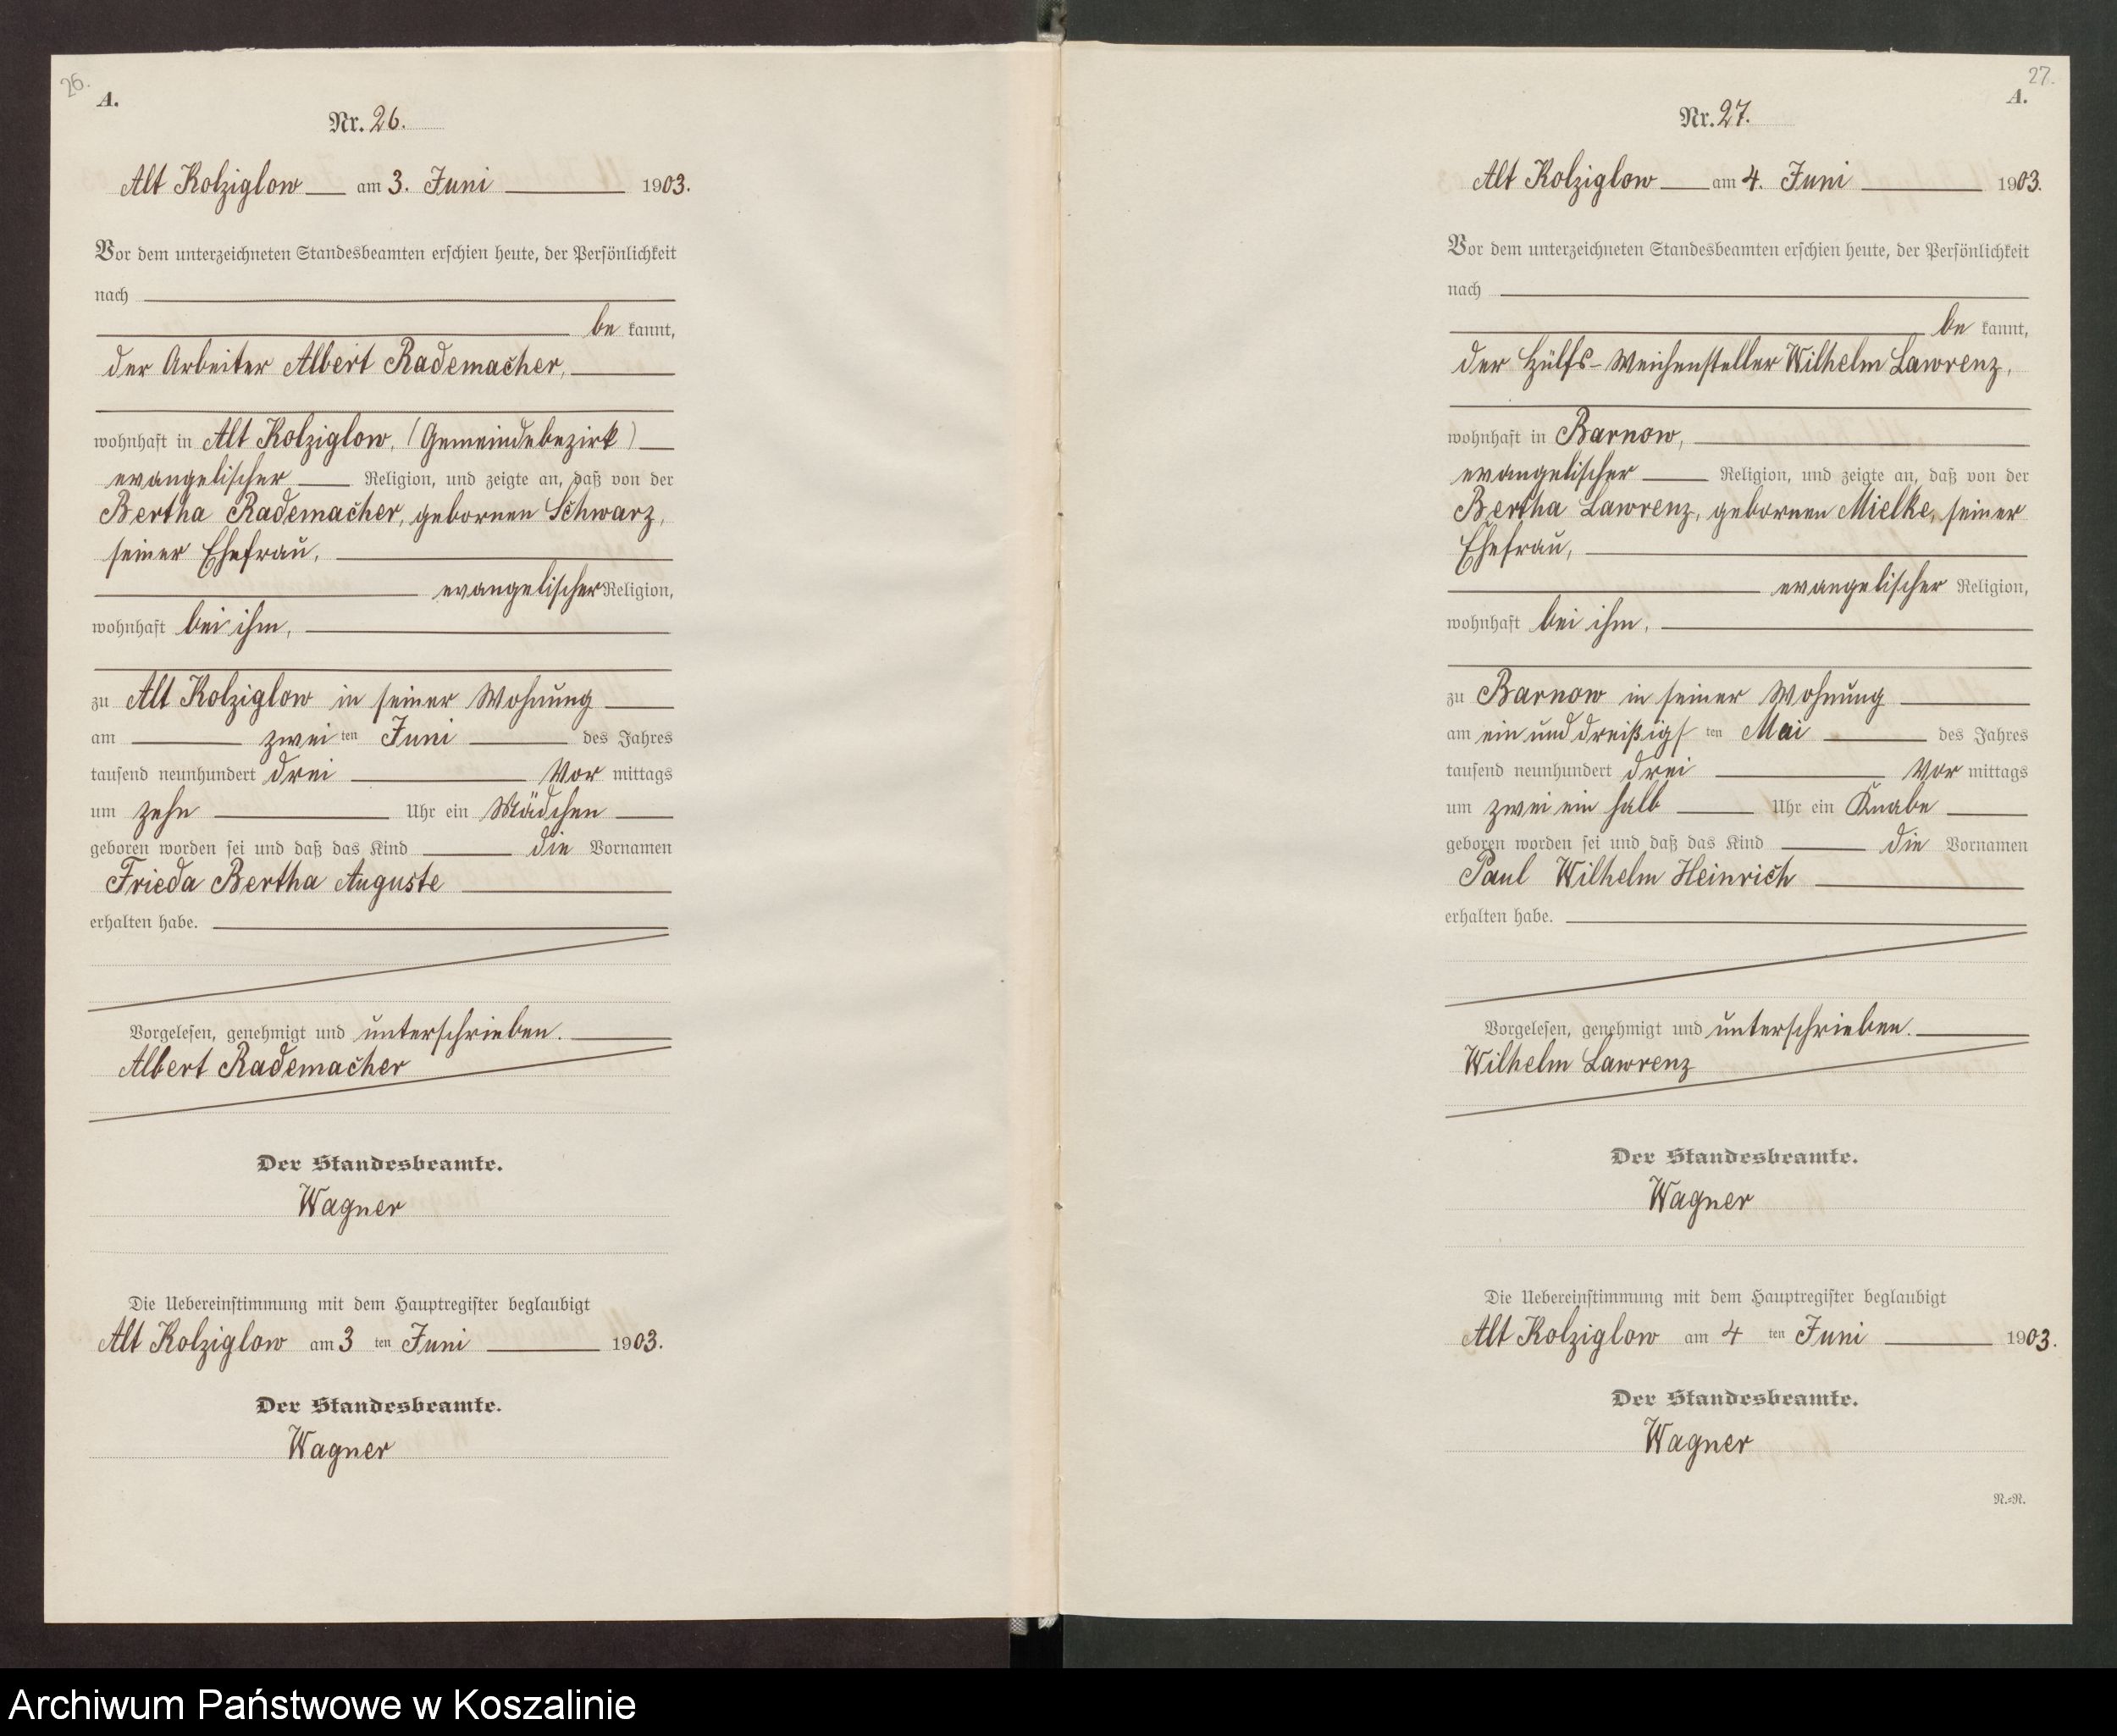 26.
A.
Nr. 26.
Alt Kolziglow am 3. Juni 1903.
Vor dem unterzeichneten Standesbeamten erschien heute, der Persönlichkeit
nach
be kannt,
der Arbeiter Albert Rademacher,
wohnhaft in Alt Kolziglow, (Gemeindebezirk)
evangelischer Religion, und zeigte an, daß von der
Bertha Rademacher, gebornen Schwarz,
seiner Ehefrau,
evangelischer Religion,
wohnhaft bei ihm,
zu Alt Kolziglow in seiner Wohnung
am zwei ten Juni des Jahres
tausend neunhundert drei Vor mittags
um zehn Uhr ein Mädchen
geboren worden sei und daß das Kind die Vornamen
Frieda Bertha Auguste
erhalten habe.
Vorgelesen, genehmigt und unterschrieben.
Albert Rademacher
Der Standesbeamte.
Wagner
Die Uebereinstimmung mit dem Hauptregister beglaubigt
Alt Kolziglow am 3 ten Juni 1903.
Der Standesbeamte.
Wagner
27.
A.
Nr. 27.
Alt Kolziglow am 4. Juni 1903.
Vor dem unterzeichneten Standesbeamten erschien heute, der Persönlichkeit
nach
be kannt,
der Hülfs-Weichensteller Wilhelm Lawrenz,
wohnhaft in Barnow,
evangelischer Religion, und zeigte an, daß von der
Bertha Lawrenz, gebornen Mielke, seiner
Ehefrau,
evangelischer Religion,
wohnhaft bei ihm,
zu Barnow in seiner Wohnung
am ein und dreißigs ten Mai des Jahres
tausend neunhundert drei Vor mittags
um zwei ein halb Uhr ein Knabe
geboren worden sei und daß das Kind die Vornamen
Paul Wilhelm Heinrich
erhalten habe.
Vorgelesen, genehmigt und unterschrieben.
Wilhelm Lawrenz
Der Standesbeamte.
Wagner
Die Uebereinstimmung mit dem Hauptregister beglaubigt
Alt Kolziglow am 4 ten Juni 1903.
Der Standesbeamte.
Wagner
N.=R.
Archiwum Państwowe w Koszalinie